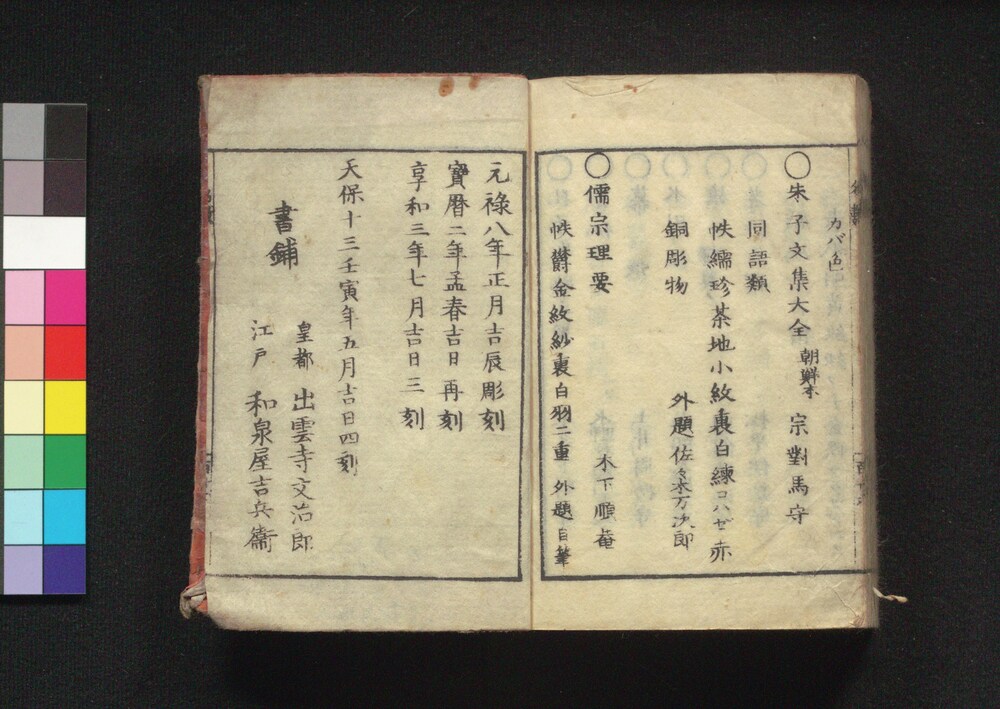 カバ色
○朱子文集大全 朝鮮本 宗對馬守
同語類
帙繻珍茶地小紋裏白練コハゼ赤
銅彫物 外題佐々木万次郎
○儒宗理要 木下順菴
帙欝金紋紗裏白羽二重 外題自筆
元禄八年正月吉辰彫刻
寳暦二年孟春吉日再刻
享和三年七月吉日三刻
天保十三壬寅年五月吉日四刻
書鋪
皇都 出雲寺文治郎
江戸 和泉屋吉兵衞